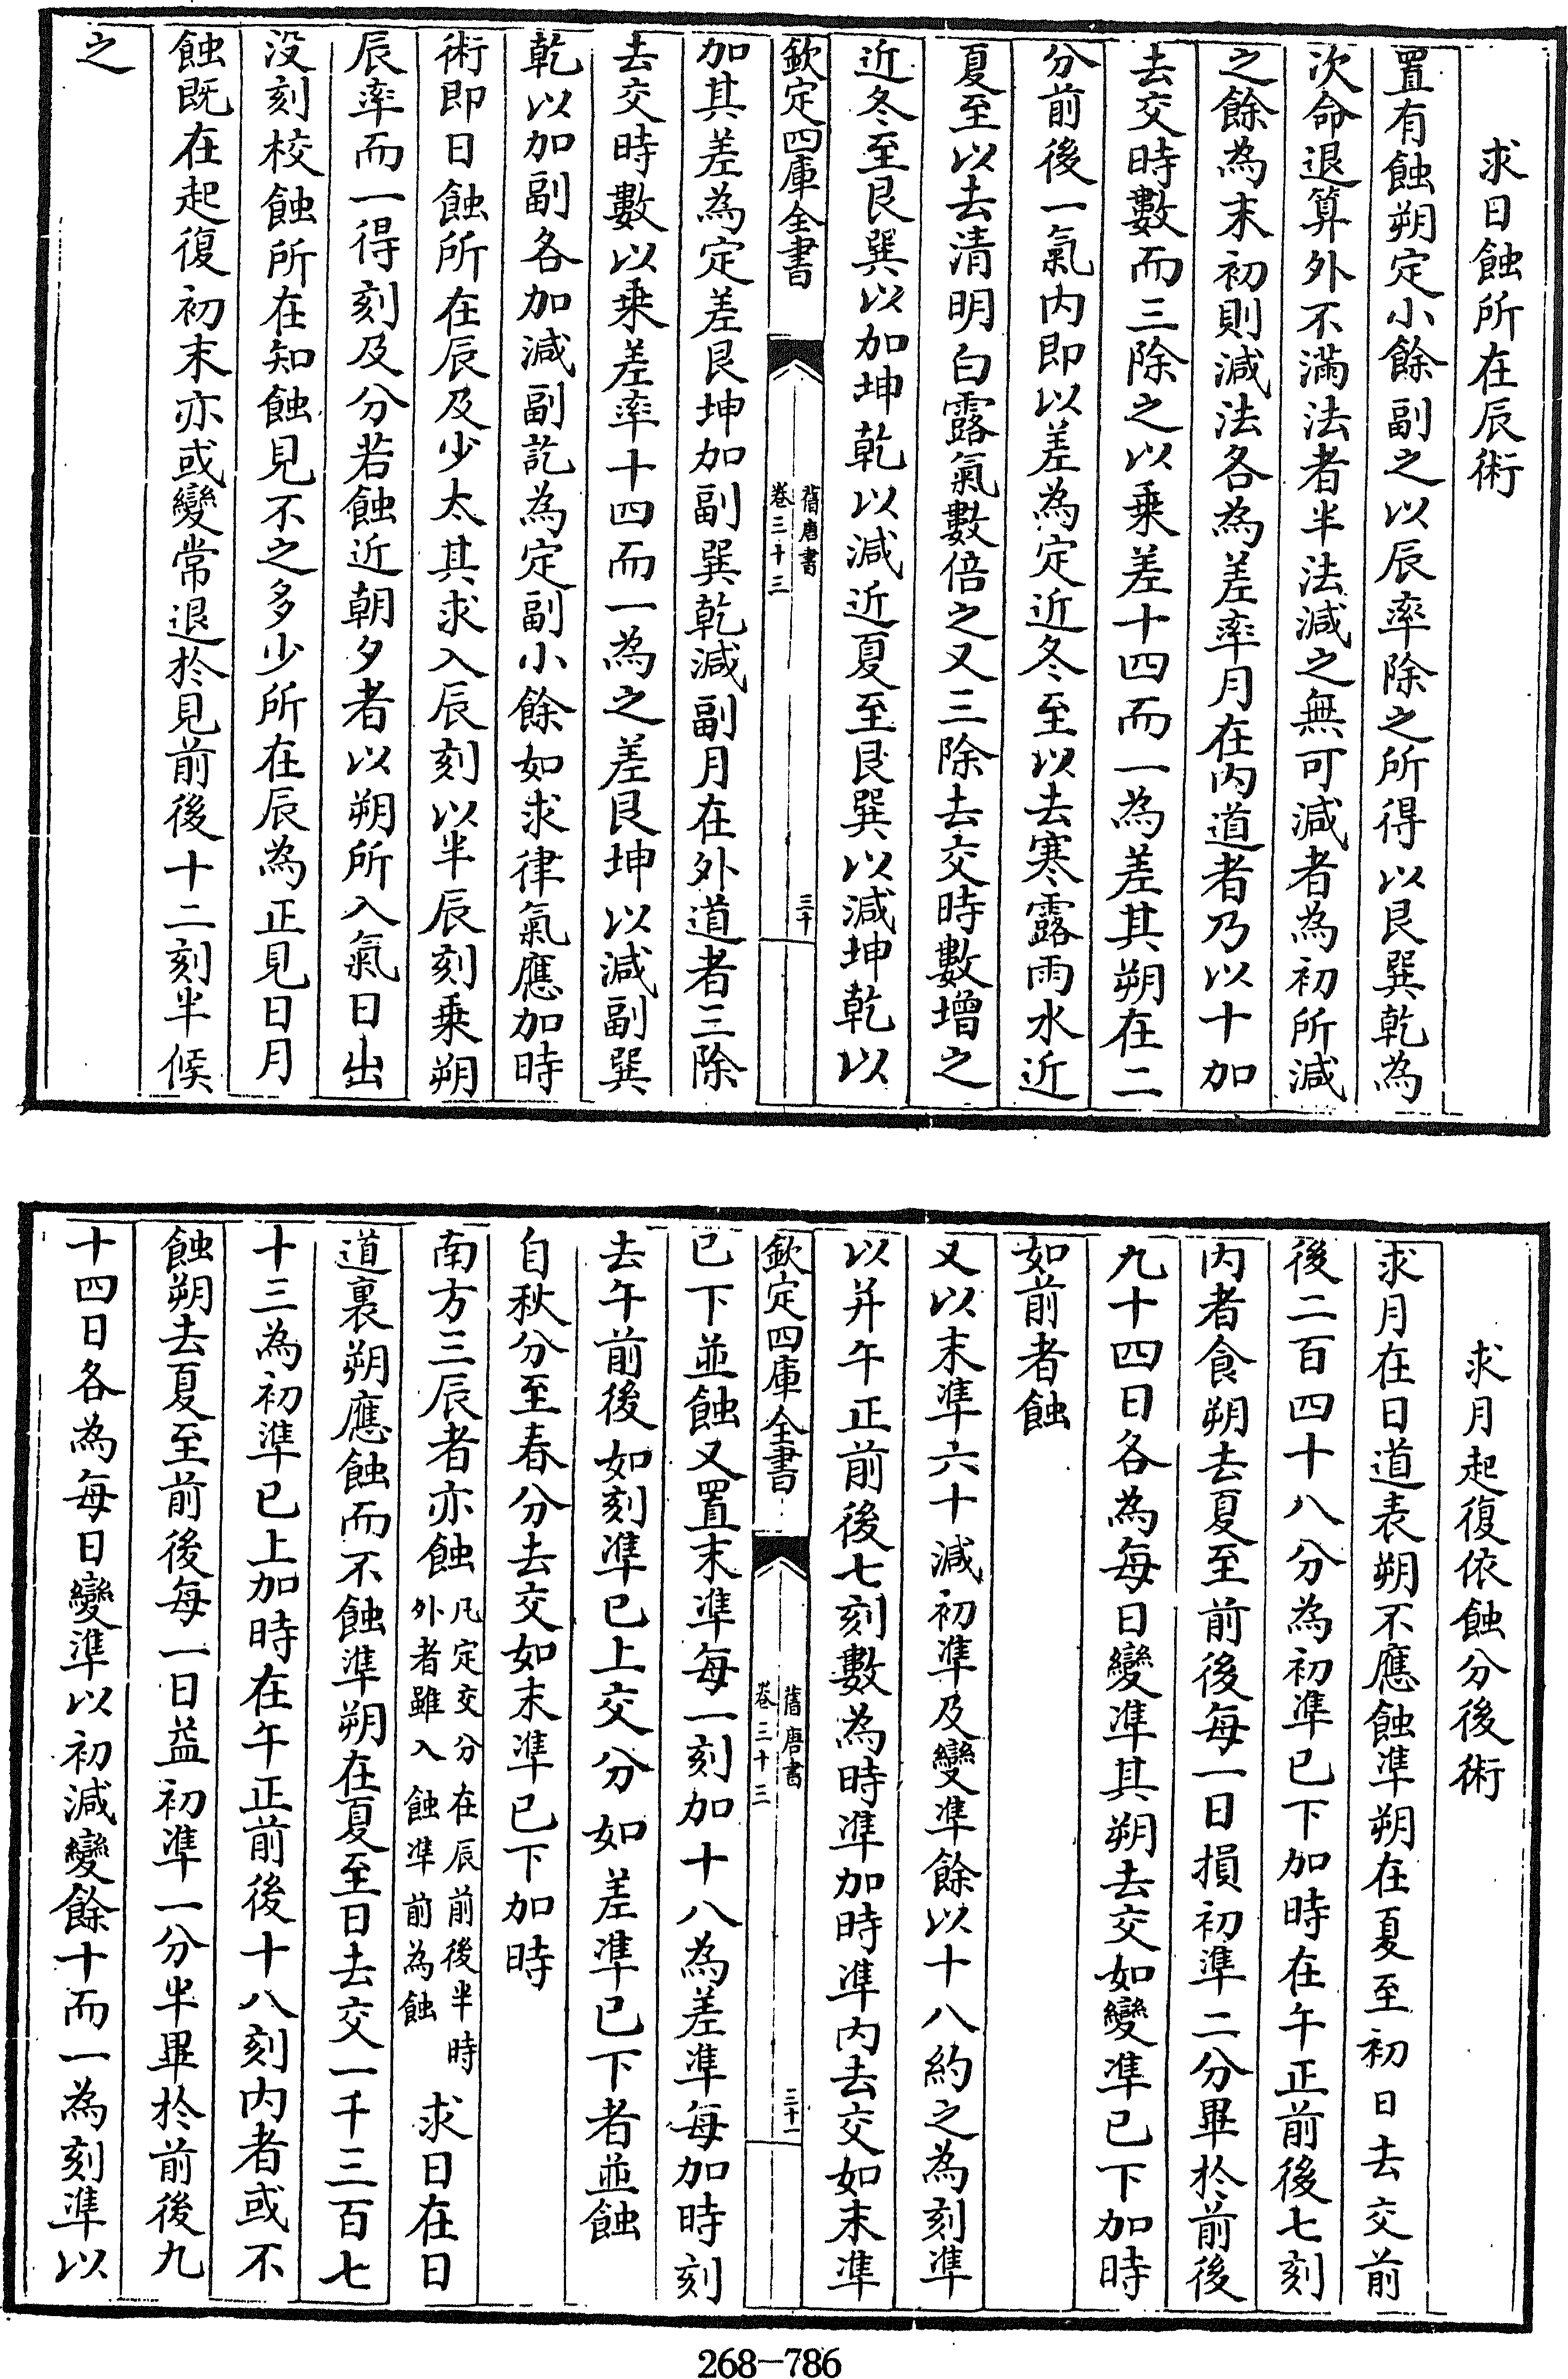 求日蝕所在辰術
置有蝕朔定小餘副之以辰率除之所得以艮巽乾為
次命退算外不滿法者半法減之無可減者為初所減
之餘為末初則減法各為差率月在內道者乃以十加
去交時數而三除之以乘差十四而一為差其朔在二
分前後一氣內即以差為定近冬至以去寒露雨水近
夏至以去清明白露氣數倍之又三除去交時數增之
近冬至艮巽以加坤乾以減近夏至艮巽以減坤乾以
欽定四庫全書
舊唐書
卷三十三
三十
加其差為定差艮坤加副巽乾減副月在外道者三除
去交時數以乘差率十四而一為之差艮坤以減副巽
乾以加副各加減副訖為定副小餘如求律氣應加時
術即日蝕所在辰及少太其求入辰刻以半辰刻乘朔
辰率而一得刻及分若蝕近朝夕者以朔所入氣日出
沒刻校蝕所在知蝕見不之多少所在辰為正見日月
蝕既在起復初末亦或變常退於見前後十二刻半候
之
求月起復依蝕分後術
求月在日道表朔不應蝕準朔在夏至初日去交前
後二百四十八分為初準已下加時在午正前後七刻
內者食朔去夏至前後每一日損初準二分畢於前後
九十四日各為每日變準其朔去交如變準已下加時
如前者蝕
又以末準六十減初準及變準餘以十八約之為刻準
以并午正前後七刻數為時準加時準內去交如末準
欽定四庫全書
舊唐書
卷三十三
三十一
已下並蝕又置末準每一刻加十八為差準每加時刻
去午前後如刻準已上交分如差準已下者並蝕
自秋分至春分去交如末準已下加時
南方三辰者亦蝕凡定交分在辰前後半時外者雖入蝕準前為蝕 求日在日
道裏朔應蝕而不蝕準朔在夏至日去交一千三百七
十三為初準已上加時在午正前後十八刻內者或不
蝕朔去夏至前後每一日益初準一分半畢於前後九
十四日各為每日變準以初減變餘十而一為刻準以
268-786